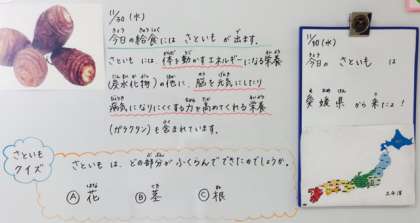 11/30 (水)
今日の給食には さといも が 出ます。
さといも には 体を動かすエネルギーになる栄養
(炭水化物) の他に、脳を元気にしたり
病気になりにくくする力を高めてくれる栄養
(ガラクタン) も含まれています。
さといも
クイズ
さといも は、どの部分が ふくらんでできたのでしょうか。
Ⓐ 花 Ⓑ 茎 Ⓒ 根
11/30 (水)
今日の さといも は
愛媛県から来たよ!